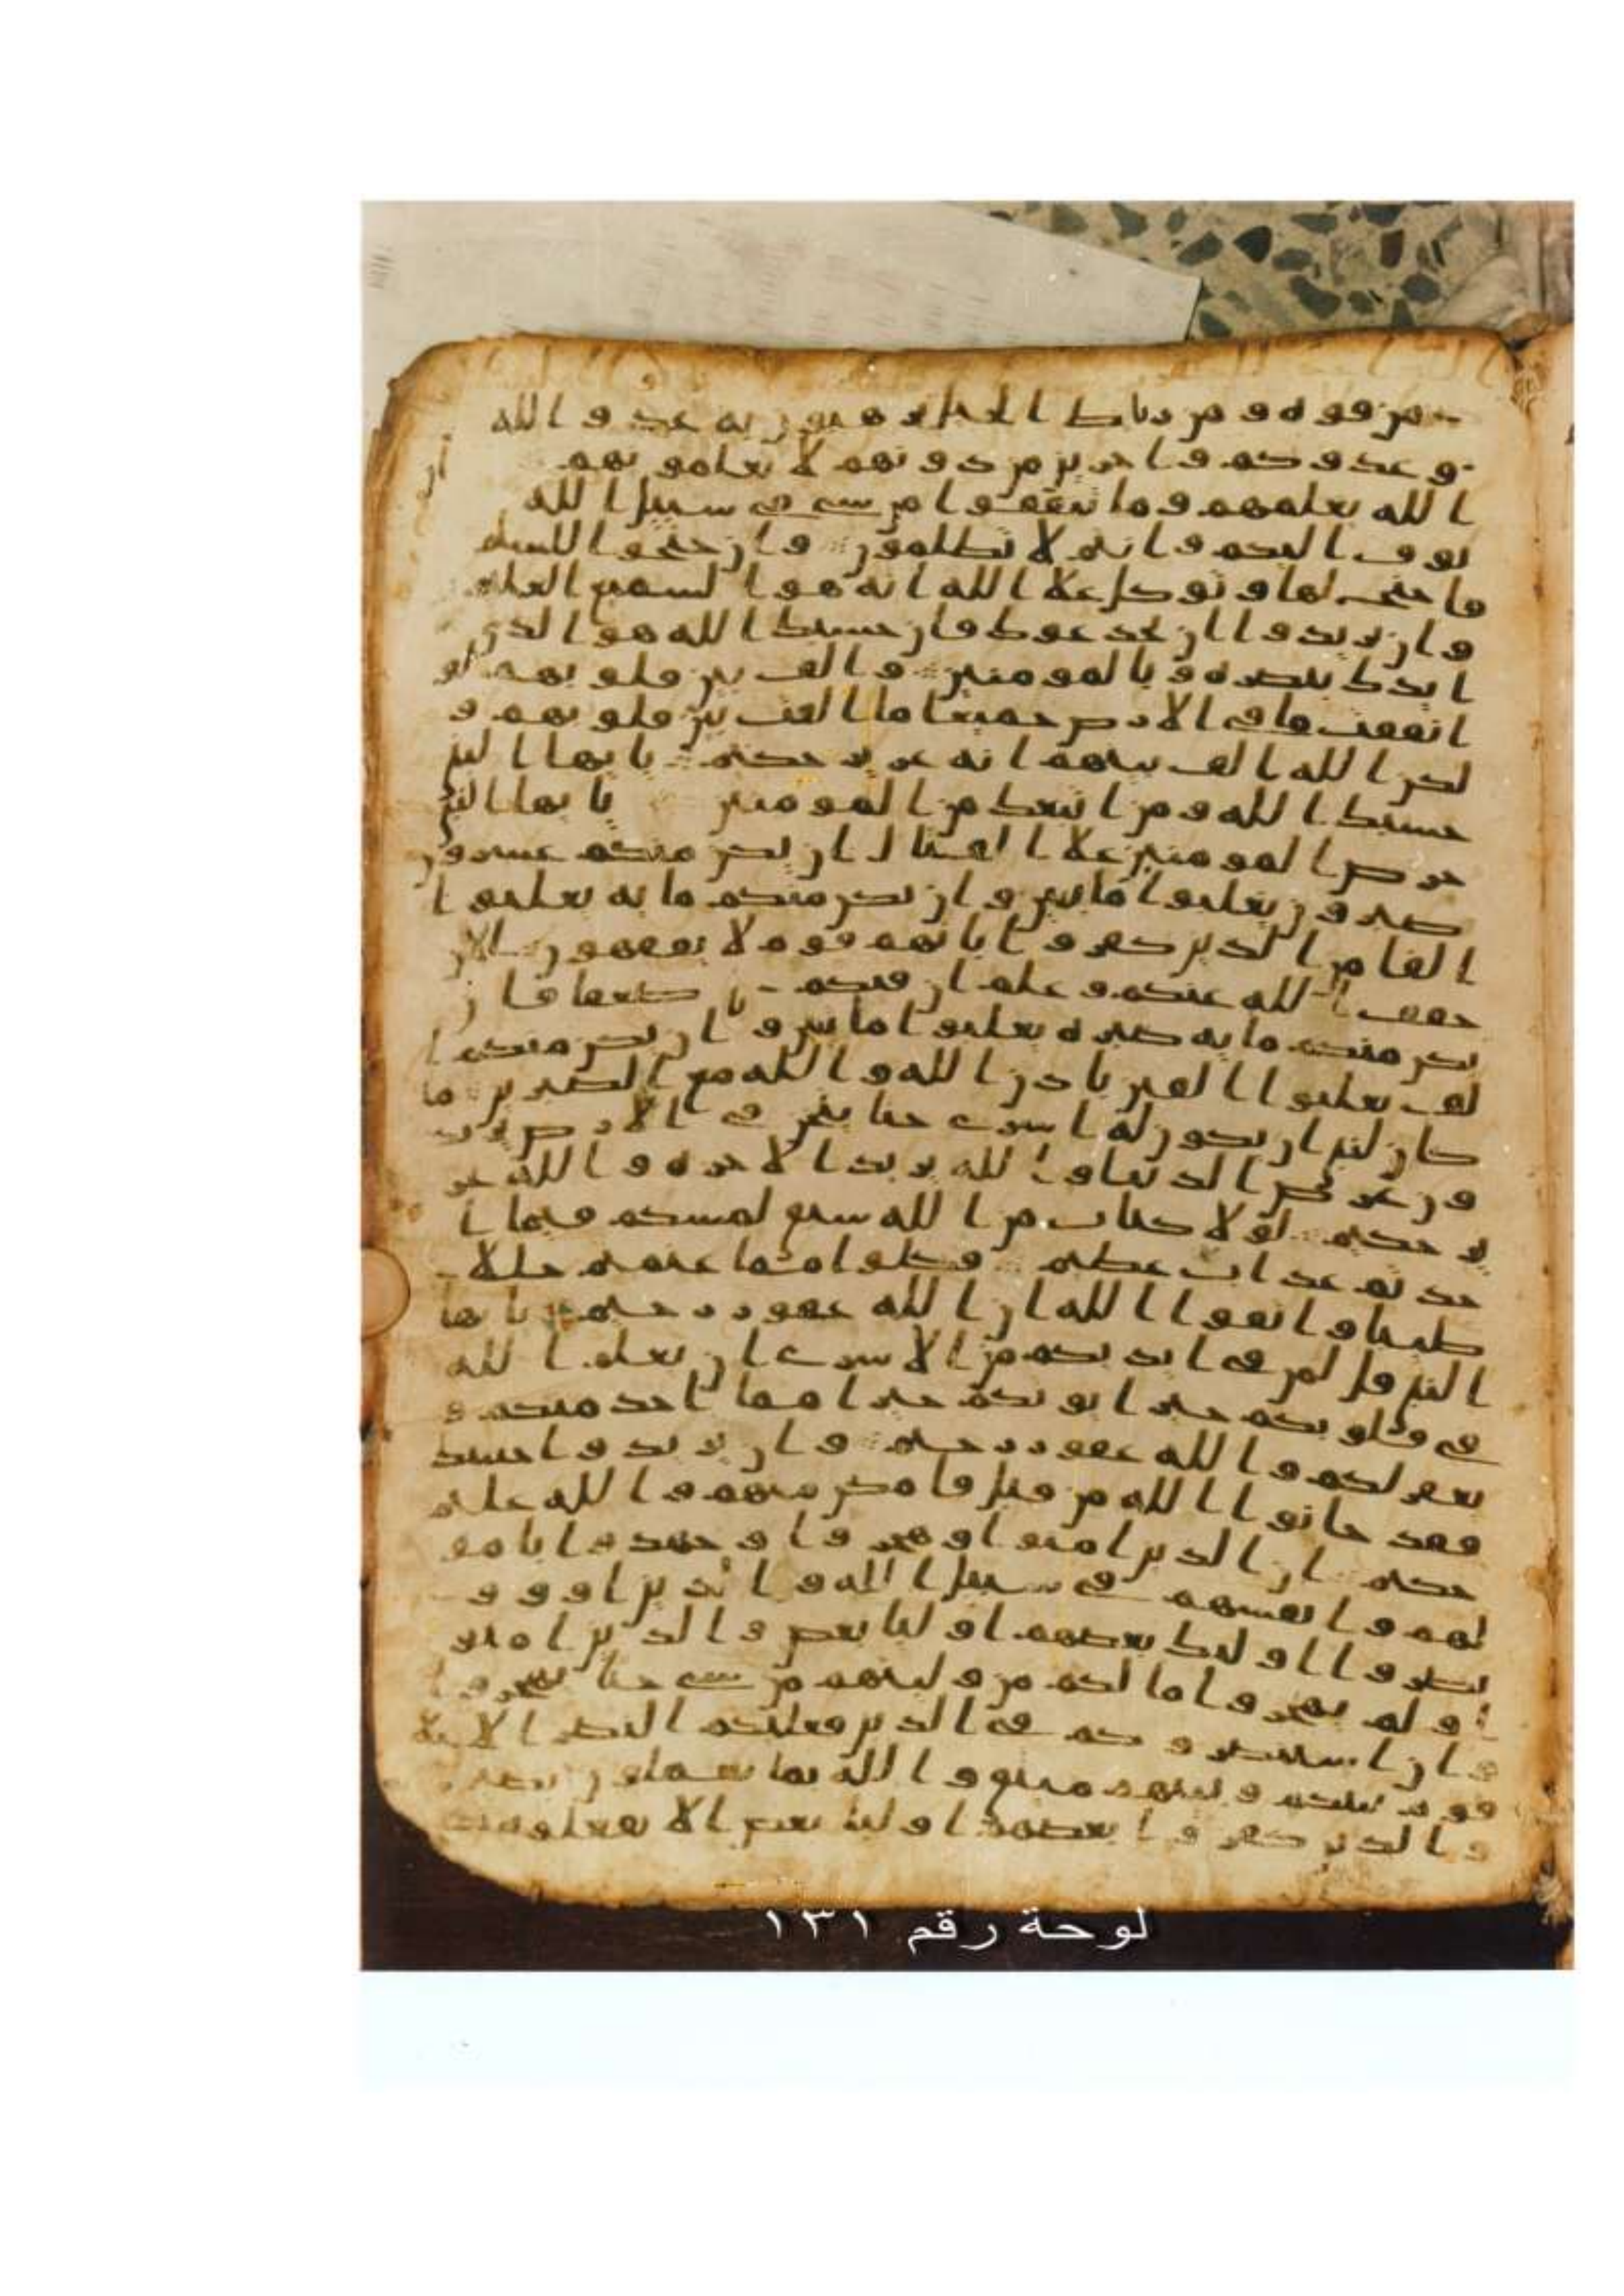 من قوه ومن رباط الخيل ترهبون به عدو الله
وعدوكم واخرين من دونهم لا تعلمونهم
الله يعلمهم وما تنفقوا من شى فى سبيل الله
يوف اليكم وانتم لا تظلمون وان جنحوا للسلم
فاجنح لها وتوكل علا الله انه هو السميع العليم
وان يريدوا ان يخدعوك فان حسبك الله هو الذى
ايدك بنصره وبالمومنين والف بين قلوبهم لو
انفقت ما فى الارض جميعا ما الفت بين قلوبهم و
لكن الله الف بينهم انه عزيز حكيم يايها النبى
حسبك الله ومن اتبعك من المومنين يايها النبى
حرض المومنين علا القتال ان يكن منكم عشرون
صبرون يغلبوا مايتين وان يكن منكم مايه يغلبوا
الفا من الذين كفروا بانهم قوم لا يفقهون الان
خفف الله عنكم وعلم ان فيكم ضعفا فان
يكن منكم مايه صبره يغلبوا مايتين وان يكن منكم ا
لف يغلبوا الفين باذن الله والله مع الصبرين ما
كان لنبى ان يكون له اسرى حتا يثخن فى الارض تريد
ون عرض الدنيا والله يريد الاخره والله عز
يز حكيم لولا كتاب من الله سبق لمسكم فيما ا
خذتم عذاب عظيم فكلوا مما غنمتم حللا
طيبا واتقوا الله ان الله غفور رحيم يايها
النبى قل لمن فى ايديكم من الاسرى ان يعلم الله
فى قلوبكم خيرا يوتكم خيرا مما اخذ منكم و
يغفر لكم والله غفور رحيم وان يريدوا خينتك
فقد خانوا الله من قبل فامكن منهم والله عليم
حكيم ان الذين امنوا وهجروا وجهدوا بامو
لهم وانفسهم فى سبيل الله والذين اووا و
نصروا اوليك بعضهم اوليا بعض والذين امنو
ا ولم يهجروا ما لكم من وليتهم من شى حتا يهجروا
وان استنصروكم فى الدين فعليكم النصر الا علا
قوم بينكم وبينهم ميثق والله بما تعملون بصير
والذين كفروا بعضهم اوليا بعض الا تفعلوه
لوحة رقم ١٣١